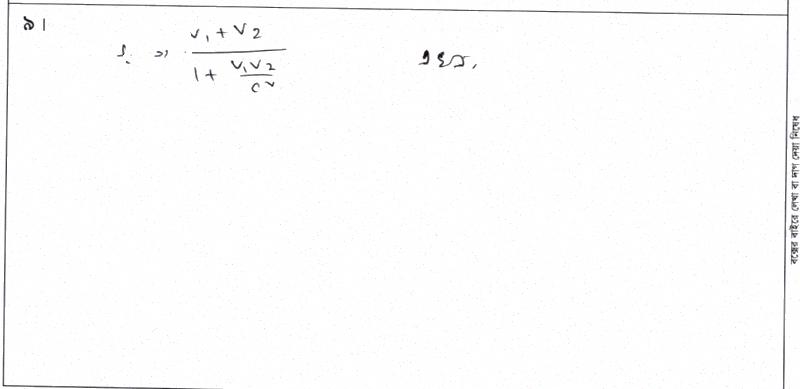 ৯।
v₁ + v₂
1 + v₁v₂
c²
বক্সের বাইরে লেখা বা দাগ দেয়া নিষেধ